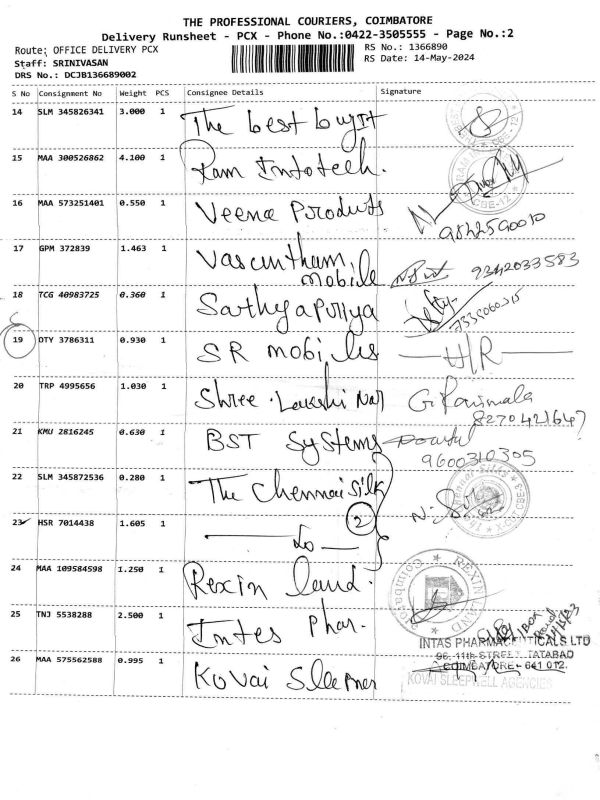 THE PROFESSIONAL COURIERS, COIMBATORE
Delivery Runsheet - PCX - Phone No.:0422-3505555 - Page No.:2
Route: OFFICE DELIVERY PCX
RS No.: 1366890
Staff: SRINIVASAN
RS Date: 14-May-2024
DRS No.: DCJB136689002
S No Consignment No Weight PCS Consignee Details Signature
14 SLM 345826341 3.000 1 The best buy IT
15 MAA 300526862 4.100 1 Ram Infotech.
CBE-12
16 MAA 573251401 0.550 1 Veena Products
9842590010
17 GPM 372839 1.463 1 Vasantham mobile 9342033583
18 TCG 40983725 0.360 1 Sathyapuriya
19 OTY 3786311 0.930 1 SR mobiles H/R
20 TRP 4995656 1.030 1 Shree Lakshi Nar
8270421647
21 KMU 2816245 0.630 1 BST Systems
9600310305
22 SLM 345872536 0.280 1 The Chennai Silk
2
23 HSR 7014438 1.605 1 Do
24 MAA 109584598 1.250 1 Rexin land.
REXIN LAND
25 TNJ 5538288 2.500 1 Intes Phar.
INTAS PHARMACEUTICALS LTD
96, 11th STREET, TATABAD
COIMBATORE - 641 012.
26 MAA 575562588 0.995 1 Kovai Sleepner
KOVAI SLEEPWELL AGENCIES